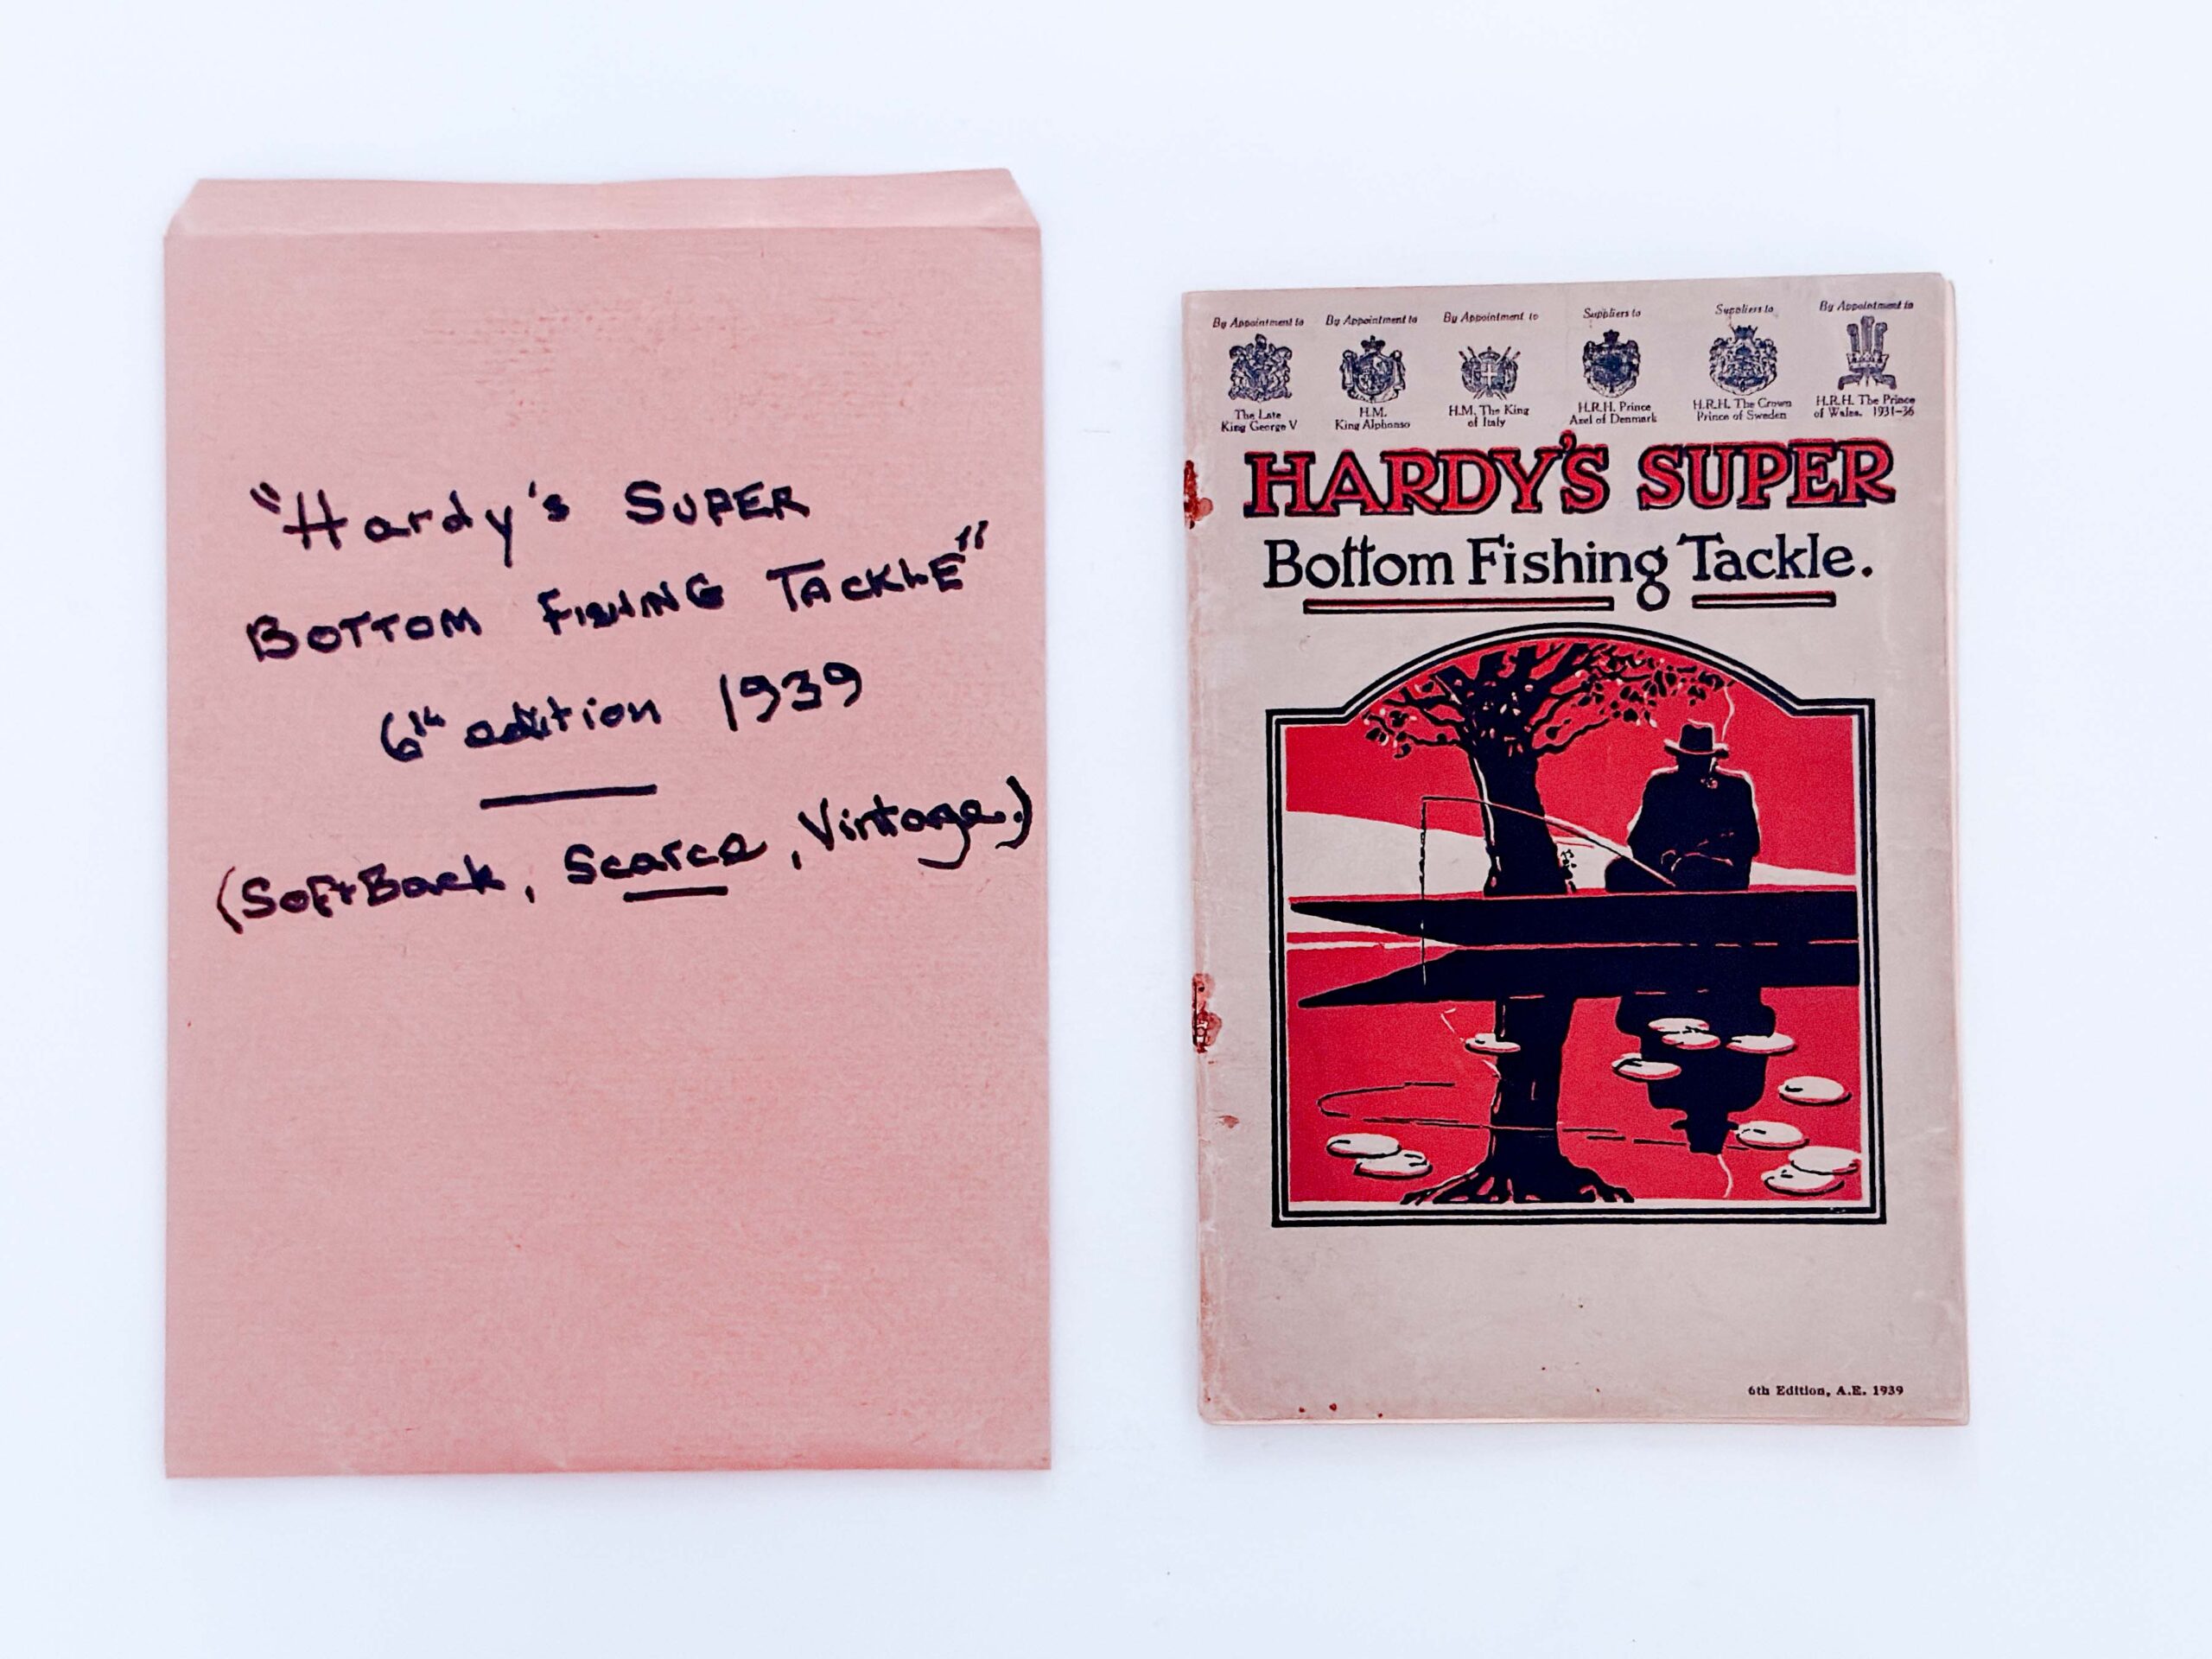 "Hardy's SUPER
BOTTOM FISHING TACKLE"
6th edition 1939
(SOFTBack, Scarce, Vintage.)
By Appointment to
The Late
King George V
By Appointment to
H.M.
King Alphonso
By Appointment to
H.M. The King
of Italy
Suppliers to
H.R.H. Prince
Axel of Denmark
Suppliers to
H.R.H. The Crown
Prince of Sweden
By Appointment to
H.R.H. The Prince
of Wales. 1931-36
HARDY'S SUPER
Bottom Fishing Tackle.
6th Edition, A.E. 1939